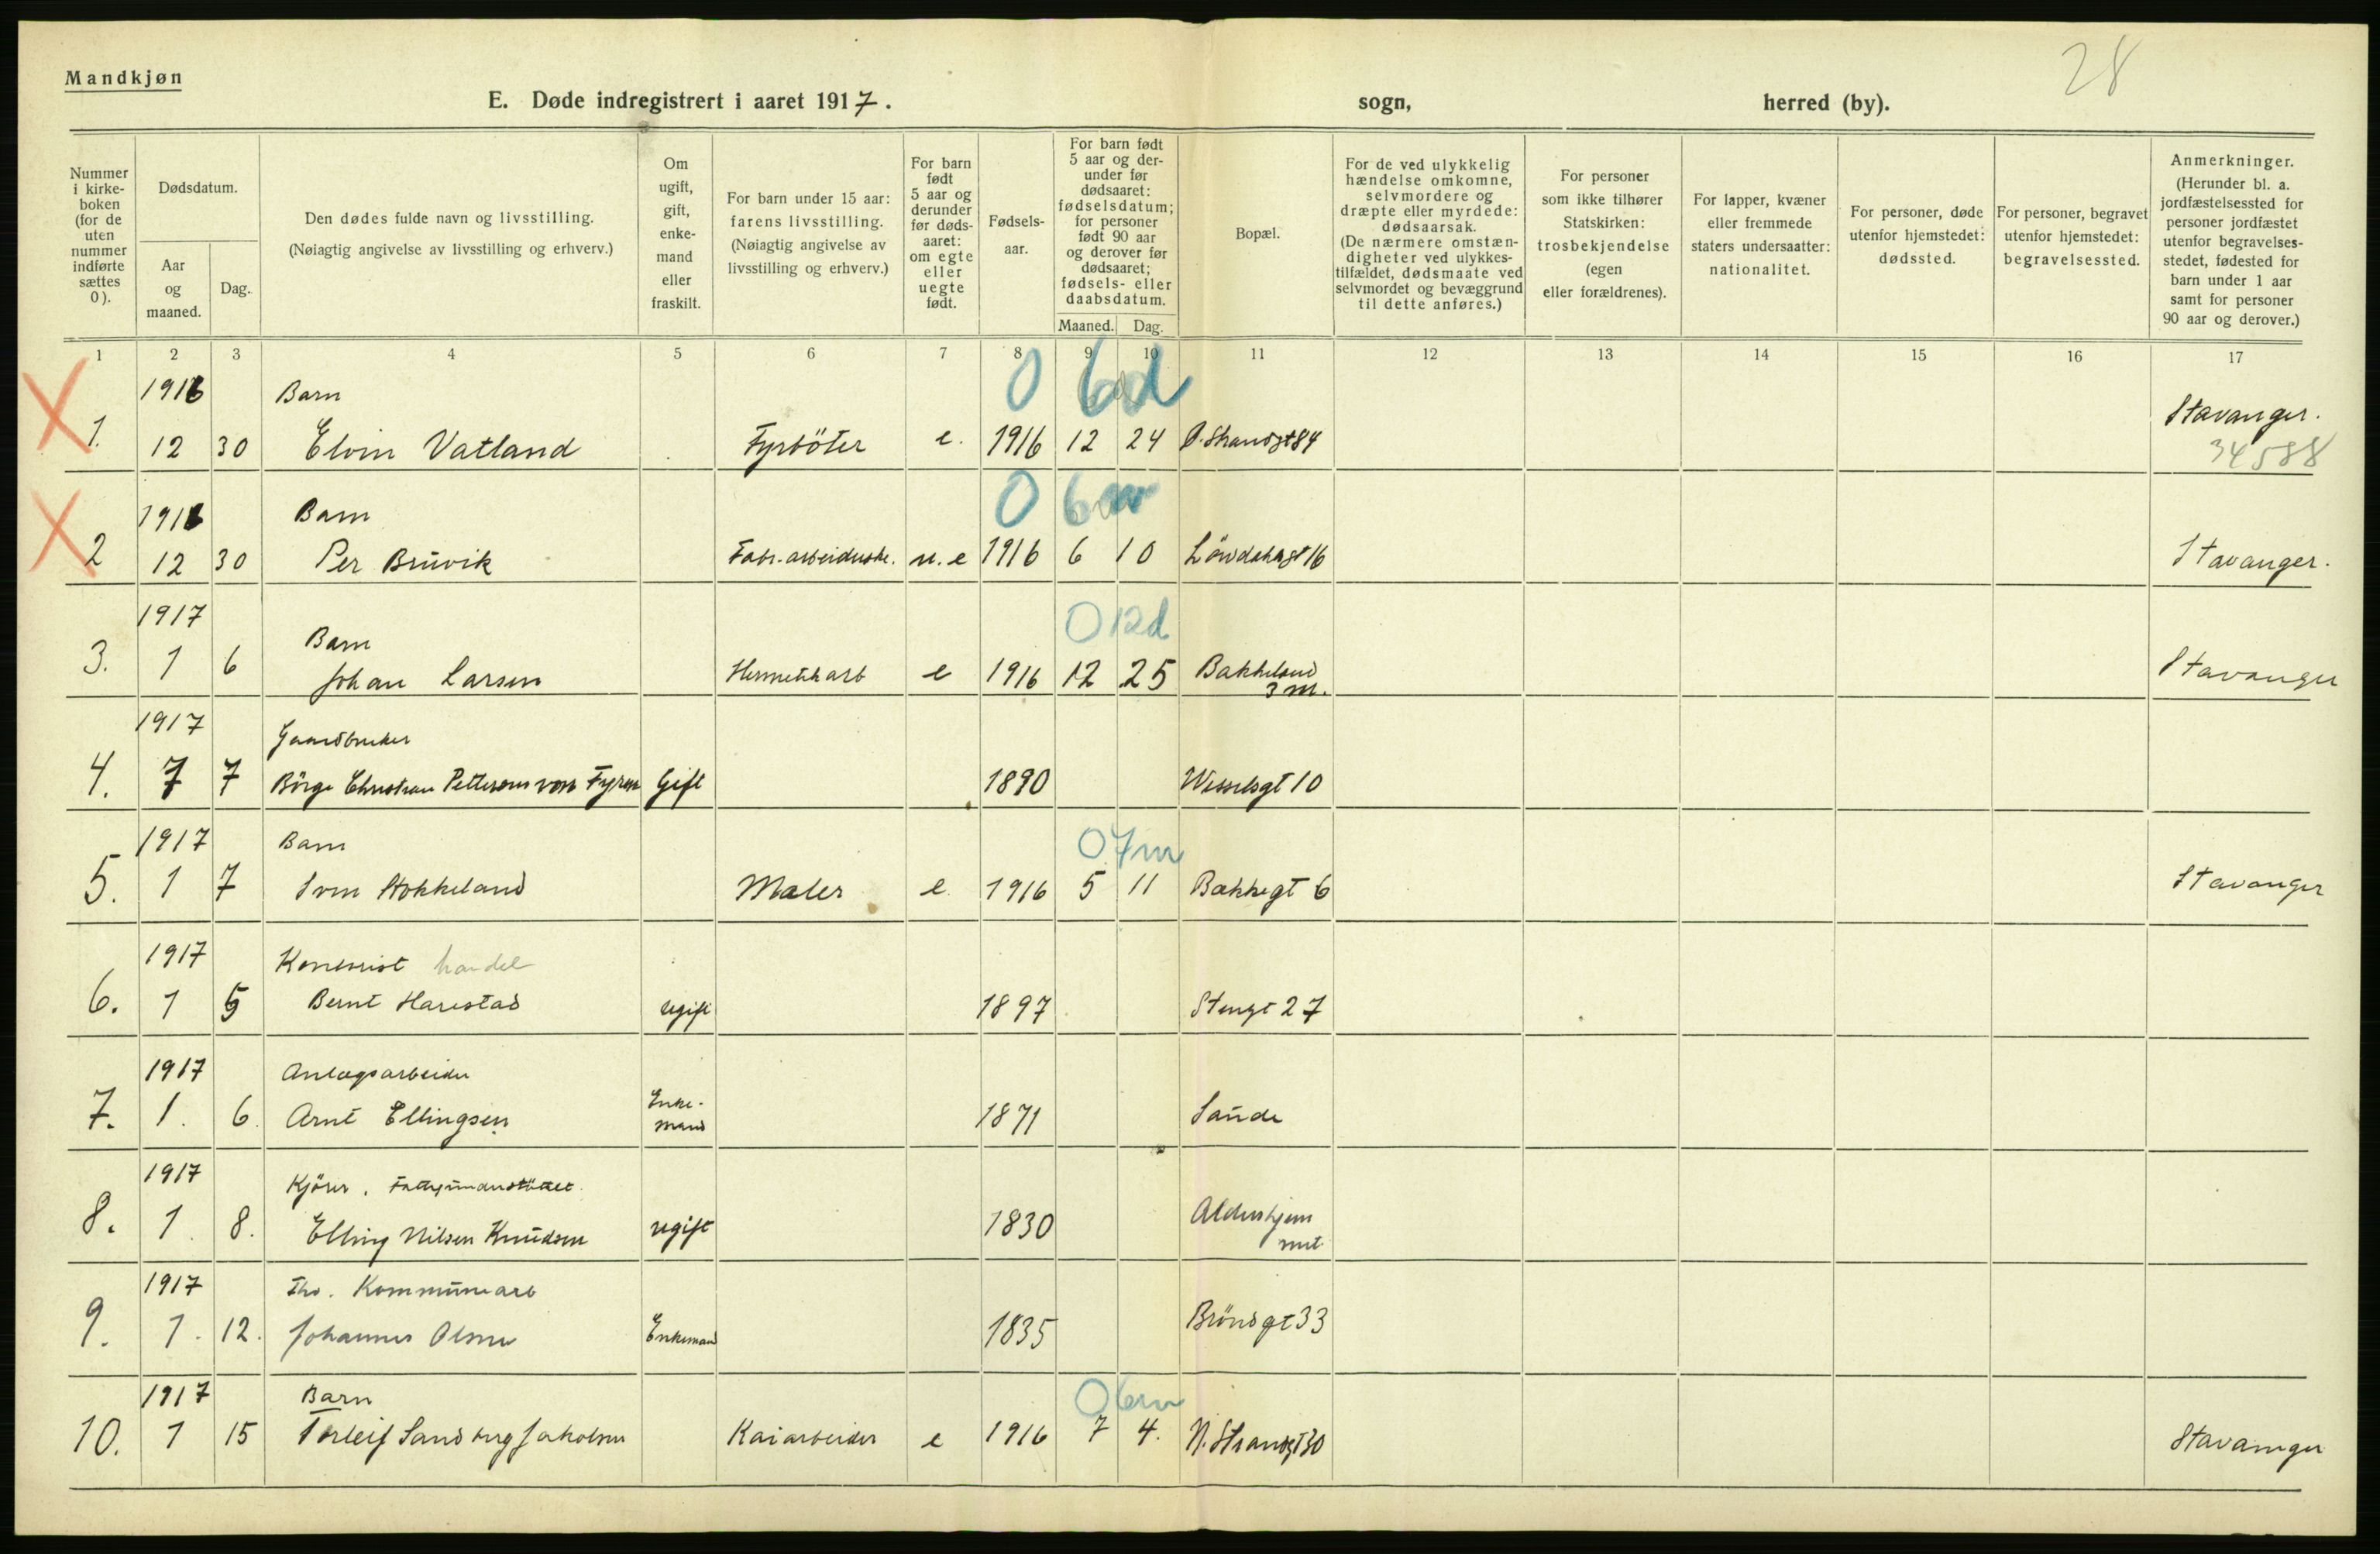 28
Mandkjøn
E. Døde indregistrert i aaret 1917. sogn, herred (by).
Nummer
i kirke-
boken
(for de
uten
nummer
indførte
sættes
0).
Dødsdatum.
Aar
og
maaned.
Dag.
Den dødes fulde navn og livsstilling.
(Nøiagtig angivelse av livsstilling og erhverv.)
Om
ugift,
gift,
enke-
mand
eller
fraskilt.
For barn under 15 aar:
farens livsstilling.
(Nøiagtig angivelse av
livsstilling og erhverv.)
For barn
født
5 aar og
derunder
før døds-
aaret:
om egte
eller
uegte
født.
Fødsels-
aar.
For barn født
5 aar og der-
under før
dødsaaret:
fødselsdatum;
for personer
født 90 aar
og derover før
dødsaaret;
fødsels- eller
daabsdatum.
Maaned. Dag.
Bopæl.
For de ved ulykkelig
hændelse omkomne,
selvmordere og
dræpte eller myrdede:
dødsaarsak.
(De nærmere omstæn-
digheter ved ulykkes-
tilfældet, dødsmaate ved
selvmordet og bevæggrund
til dette anføres.)
For personer
som ikke tilhører
Statskirken:
trosbekjendelse
(egen
eller forældrenes).
For lapper, kvæner
eller fremmede
staters undersaatter:
nationalitet.
For personer, døde
utenfor hjemstedet:
dødssted.
For personer, begravet
utenfor hjemstedet:
begravelsessted.
Anmerkninger.
(Herunder bl. a.
jordfæstelsessted for
personer jordfæstet
utenfor begravelses-
stedet, fødested for
barn under 1 aar
samt for personer
90 aar og derover.)
1 2 3 4 5 6 7 8 9 10 11 12 13 14 15 16 17
1916 Barn 0 6d
1. 12 30 Elvin Vatland Fyrböter e. 1916 12 24 Ø. Strandgt 84 Stavanger.
34588
1916 Barn 0 6m
2 12 30 Per Bruvik Fabr. arbeiderske. u. e 1916 6 10 Lövdahlsgt 16 Stavanger.
1917 Barn 0 12d
3. 1 6 Johan Larsen Hermetikarb e 1916 12 25 Bakkeland Stavanger
3 M.
1917 Gaardbruker
4. 7 7 Börge Christian Petterson von Fyren Gift 1890 Wesselsgt 10
1917 Barn 0 7m
5. 1 7 Sven Stokkeland Maler e 1916 5 11 Bakkegt 6 Stavanger
1917 Kontorist handel
6. 1 5 Bernt Harestad ugift 1897 Stengt 27
1917 Anlægsarbeider
7. 1. 6. Arnt Ellingsen Enke-
mand 1871 Sande
1917 Kjörer. Fattigunderstöttet.
8. 1. 8. Elling Nilsen Knudsen ugift 1830 Aldershjem
1917 Fhv. Kommunearb
9. 1. 12. Johannes Olsen Enkemand 1835 Bröndgt 33
1917 Barn 0 6m
10. 1 15 Torleif Sandberg Jakobsen Kaiarbeider e 1916 7 4. N. Strandgt 30 Stavanger